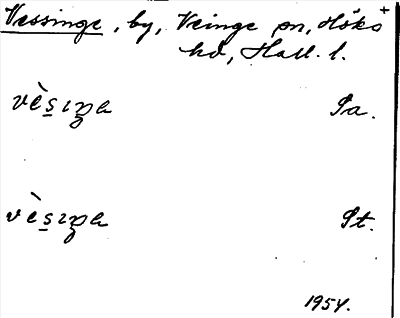 Vessinge, by, Veinge sn, Höks +
hd, Hall. l.
vèsıŋa Sa.
vèsıŋa St.
1954.